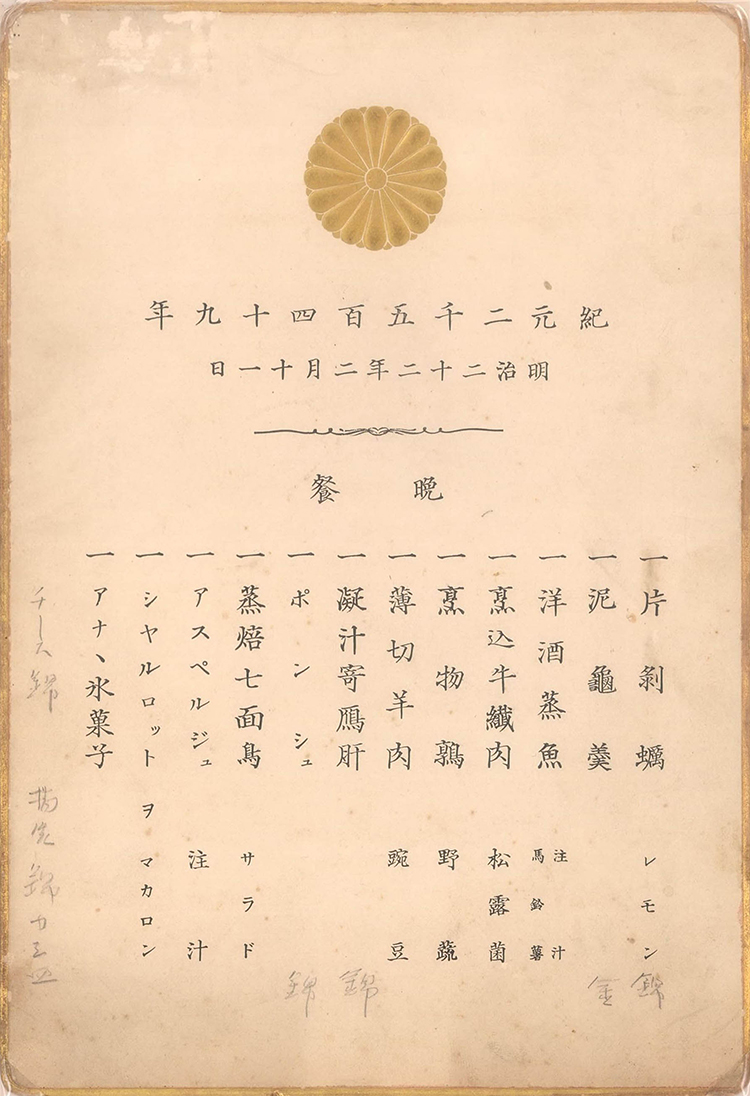 紀元二千五百四十九年
明治二十二年二月十一日
晩餐
一片剝蠣 レモン
一泥龜羹
一洋酒蒸魚 注汁 馬鈴薯
一烹込牛纖肉 松露菌
一烹物鶉 野蔬
一薄切羊肉 豌豆
一凝汁寄鴈肝
一ポンシュ
一蒸焙七面鳥 サラド
一アスペルジュ 注汁
一シヤルロット ヲ マカロン
一アナヽ氷菓子
錦
錦
錦
チース 錦